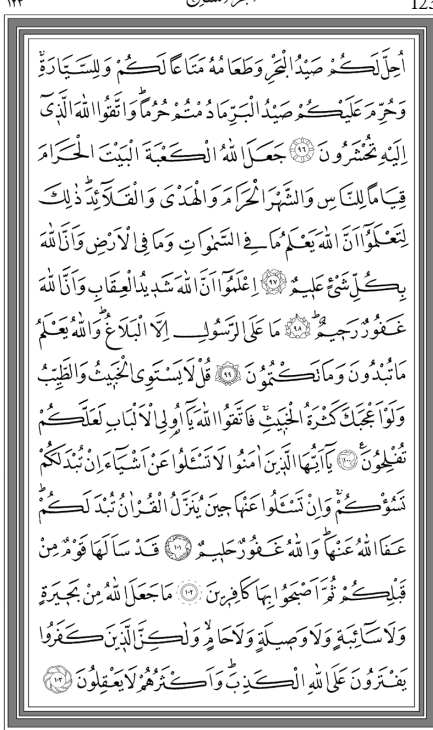 ١٢٣ 123
اُحِلَّ لَكُمْ صَيْدُ الْبَحْرِ وَطَعَامُهُ مَتَاعًا لَكُمْ وَلِلسَّيَّارَةِۚ
وَحُرِّمَ عَلَيْكُمْ صَيْدُ الْبَرِّ مَا دُمْتُمْ حُرُمًاۜ وَاتَّقُوا اللّٰهَ الَّذ۪ٓي
اِلَيْهِ تُحْشَرُونَ ﴿٩٦﴾ جَعَلَ اللّٰهُ الْكَعْبَةَ الْبَيْتَ الْحَرَامَ
قِيَامًا لِلنَّاسِ وَالشَّهْرَ الْحَرَامَ وَالْهَدْيَ وَالْقَلَٓائِدَۜ ذٰلِكَ
لِتَعْلَمُٓوا اَنَّ اللّٰهَ يَعْلَمُ مَا فِي السَّمٰوَاتِ وَمَا فِي الْاَرْضِ وَاَنَّ اللّٰهَ
بِكُلِّ شَيْءٍ عَل۪يمٌ ﴿٩٧﴾ اِعْلَمُٓوا اَنَّ اللّٰهَ شَد۪يدُ الْعِقَابِ وَاَنَّ اللّٰهَ
غَفُورٌ رَح۪يمٌۜ ﴿٩٨﴾ مَا عَلَى الرَّسُولِ اِلَّا الْبَلَاغُۜ وَاللّٰهُ يَعْلَمُ
مَا تُبْدُونَ وَمَا تَكْتُمُونَ ﴿٩٩﴾ قُلْ لَا يَسْتَوِي الْخَب۪يثُ وَالطَّيِّبُ
وَلَوْ اَعْجَبَكَ كَثْرَةُ الْخَب۪يثِۚ فَاتَّقُوا اللّٰهَ يَٓا اُو۬لِي الْاَلْبَابِ لَعَلَّكُمْ
تُفْلِحُونَ۟ ﴿١٠٠﴾ يَٓا اَيُّهَا الَّذ۪ينَ اٰمَنُوا لَا تَسْـَٔلُوا عَنْ اَشْيَٓاءَ اِنْ تُبْدَ لَكُمْ
تَسُؤْكُمْۚ وَاِنْ تَسْـَٔلُوا عَنْهَا ح۪ينَ يُنَزَّلُ الْقُرْاٰنُ تُبْدَ لَكُمْۜ
عَفَا اللّٰهُ عَنْهَاۜ وَاللّٰهُ غَفُورٌ حَل۪يمٌ ﴿١٠١﴾ قَدْ سَاَلَهَا قَوْمٌ مِنْ
قَبْلِكُمْ ثُمَّ اَصْبَحُوا بِهَا كَافِر۪ينَ ﴿١٠٢﴾ مَا جَعَلَ اللّٰهُ مِنْ بَح۪يرَةٍ
وَلَا سَٓائِبَةٍ وَلَا وَص۪يلَةٍ وَلَا حَامٍۙ وَلٰكِنَّ الَّذ۪ينَ كَفَرُوا
يَفْتَرُونَ عَلَى اللّٰهِ الْكَذِبَۜ وَاَكْثَرُهُمْ لَا يَعْقِلُونَ ﴿١٠٣﴾